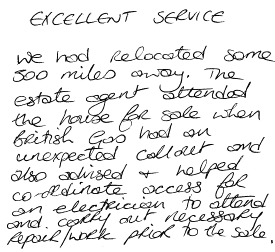 EXCELLENT SERVICE
We had relocated some
500 miles away. The
estate agent attended
the house for sale when
British Gas had an
unexpected callout and
also advised + helped
co-ordinate access for
an electrician to attend
and carry out necessary
repair/work prior to the sale.